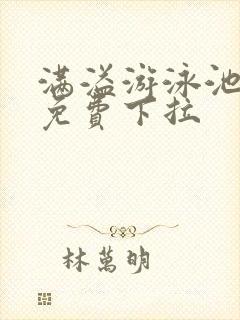 满溢游泳池
免費下拉
林萬明